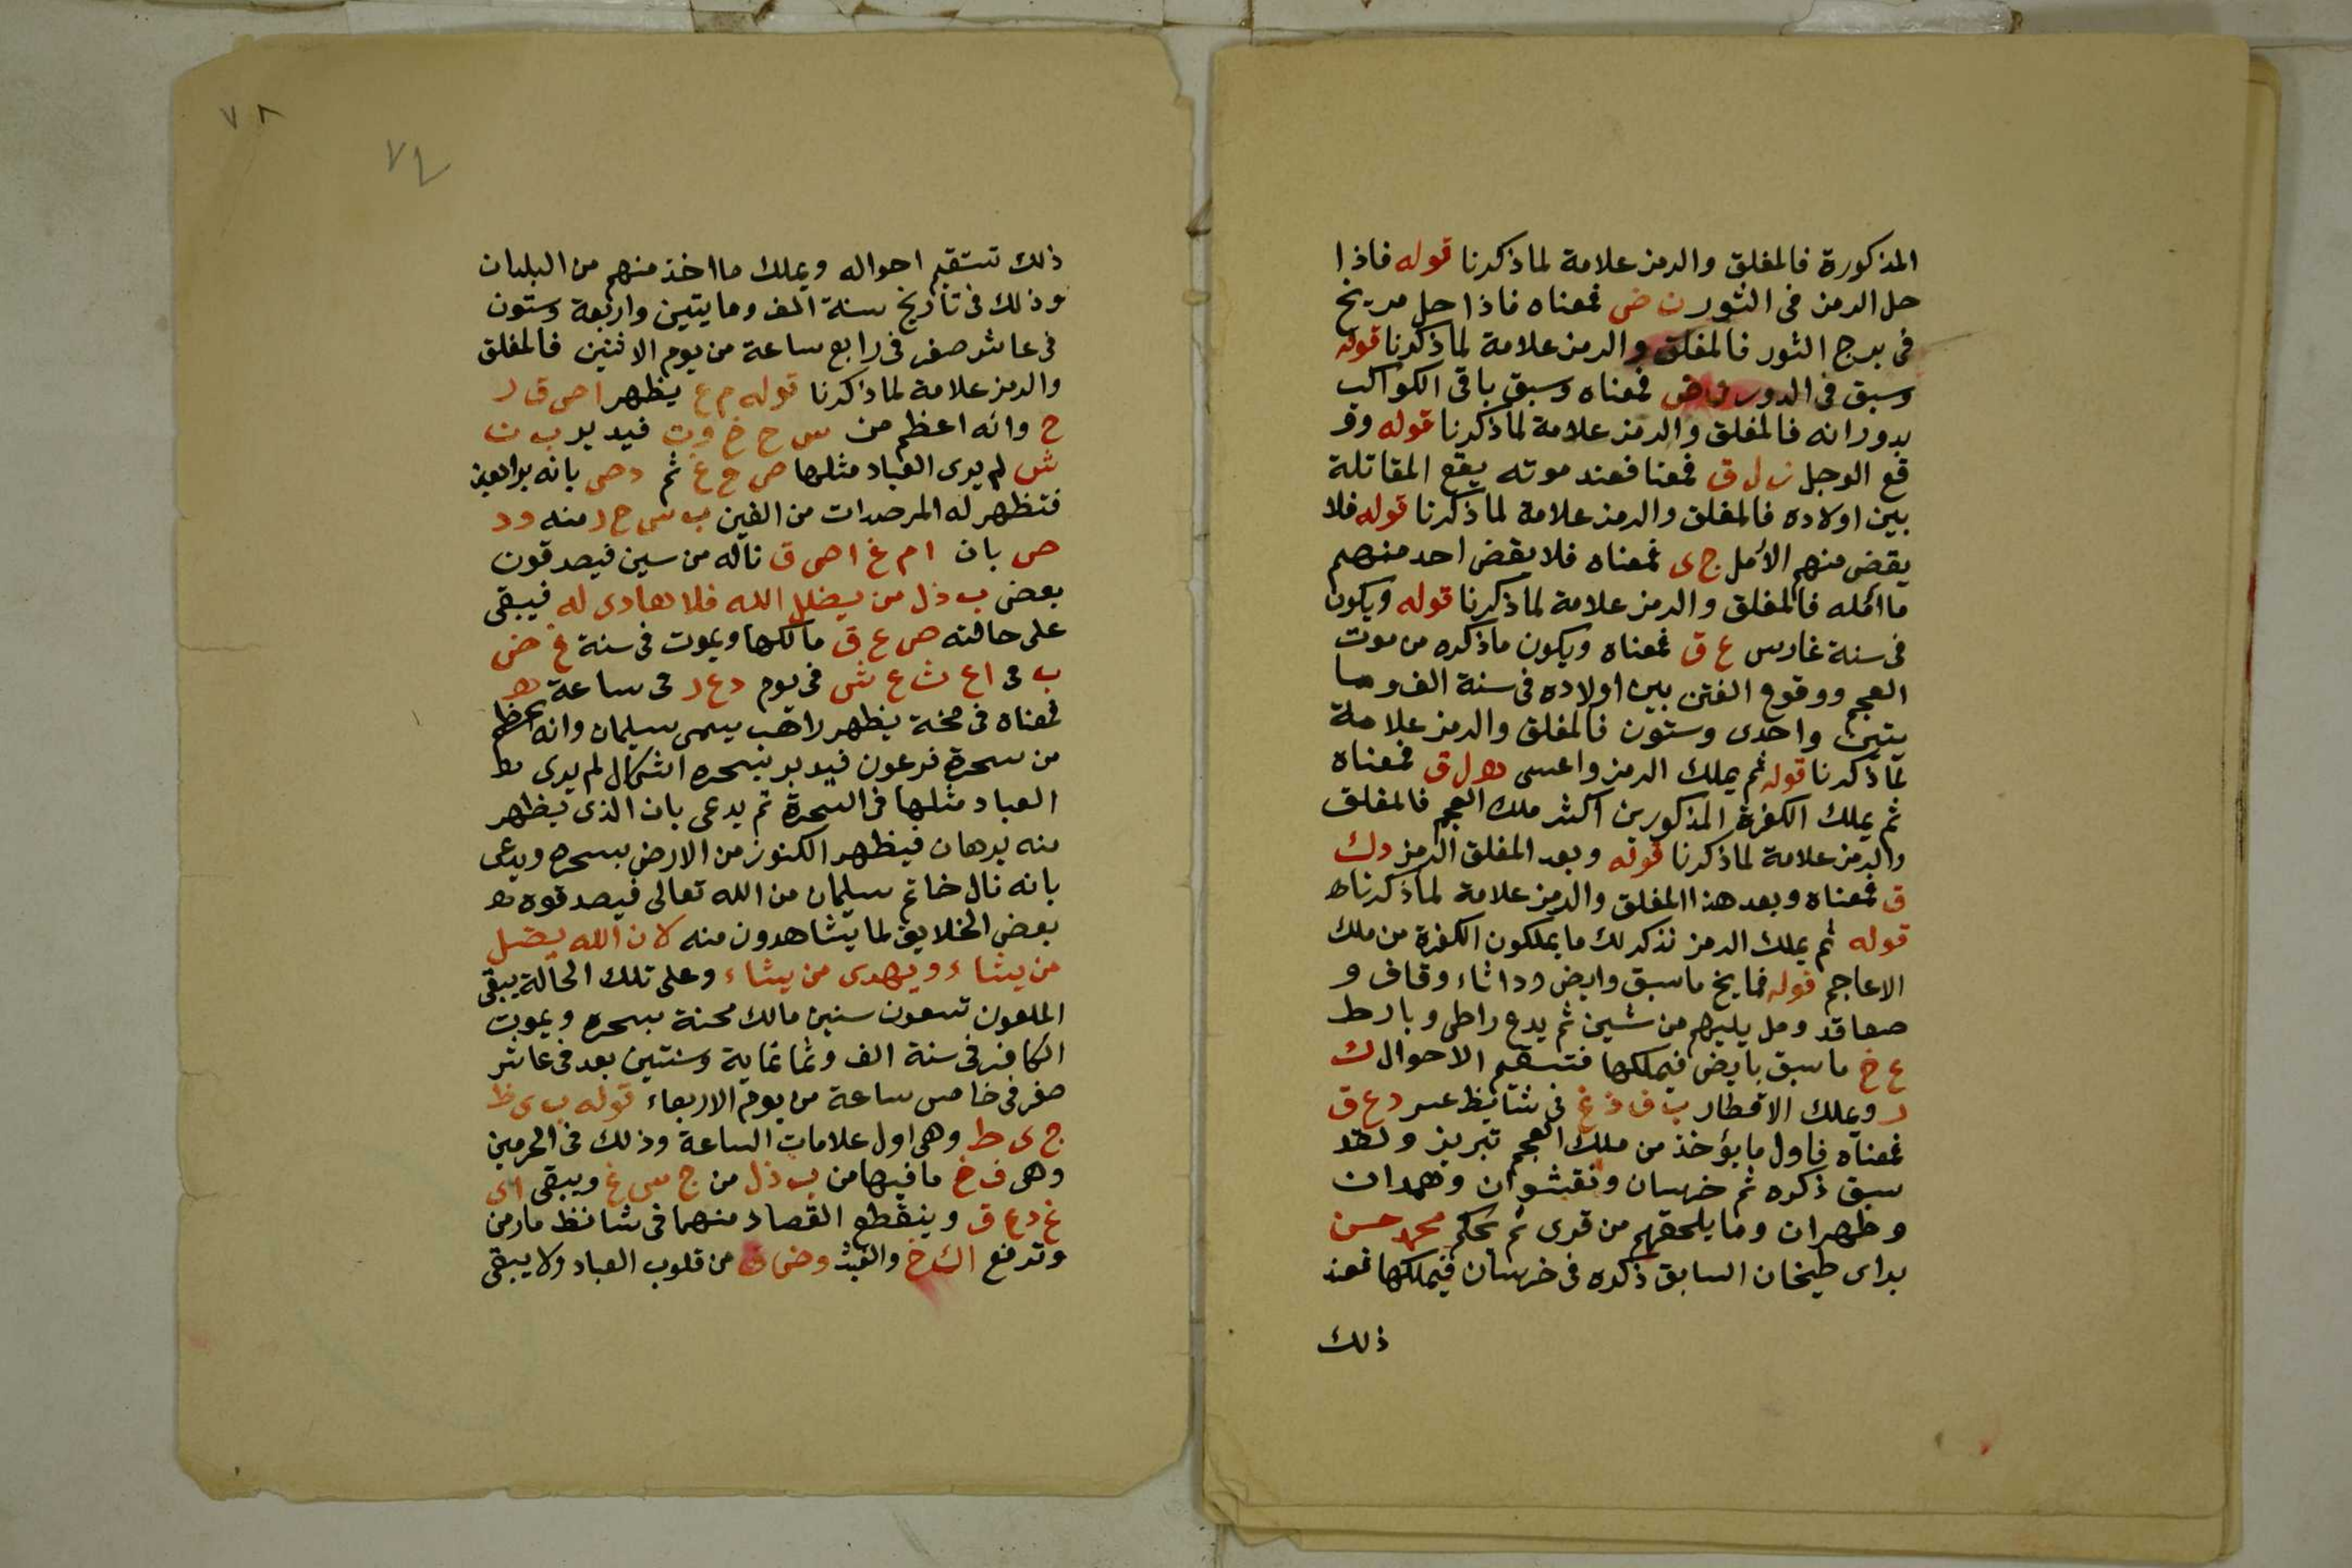 المذكورة فالمغلق والرمز علامة لما ذكرنا قوله فاذا
حل الرمز فى الثور ن ض فمعناه فاذا حل مريخ
فى برج الثور فالمغلق والرمز علامة لما ذكرنا قوله
وسبق فى الدور ض فمعناه وسبق باقى الكواكب
بدورانه فالمغلق والرمز علامة لما ذكرنا قوله وقـ
قع الوجل ن ل ق فمعنا فعند موته يقع المقاتلة
بين اولاده فالمغلق والرمز علامة لما ذكرنا قوله فلا
يقض منهم الأمل ج ى فمعناه فلا يقض احد منهم
ما امله فالمغلق والرمز علامة لما ذكرنا قوله ويكون
فى سنة غارس ع ق فمعناه ويكون ما ذكره من موت
العجم ووقوع الفتن بين اولاده فى سنة الف وما
يتين واحدى وستون فالمغلق والرمز علامة
لما ذكرنا قوله ثم يملك الرمز واعسى ه ل ق فمعناه
ثم يملك الكفرة المذكورين اكثر ملك العجم فالمغلق
والرمز علامة لما ذكرنا قوله وبعد المغلق الرمز د ك
ق فمعناه وبعد هذا المغلق والرمز علامة لما ذكرنا
قوله ثم يملك الرمز نذكر لك ما يملكون الكفرة من ملك
الاعاجم قوله فما يخ ما سبق وايض ودا ثاء وقاف و
صعاقد ومل يليهم من شين ثم يدع راطى وبارط
ع خ ما سبق بايض فيملكها فتستقم الاحوال ك
ر ويملك الاقطار ب ف ذ غ فى شانظ عسر د ع ق
فمعناه فاول ما يؤخذ من ملك العجم تبريز ولقد
سبق ذكره ثم خرسان ونقشوان وهمدان
وطهران وما يلحقهم من قرى ثم يحكم محمد حسن
براى طيخان السابق ذكره فى خرسان فيملكها فعند
ذلك
٧٨
٧٤
ذلك تستقيم احواله ويملك ما اخذ منهم من البلدان
وذلك فى تاريخ سنة الف ومايتين واربعة وستون
فى عاشر صفر فى رابع ساعة من يوم الاثنين فالمغلق
والرمز علامة لما ذكرنا قوله م ع يظهر ا ص ق ر
ح وانه اعظم من س ح خ وت فيدبر ب ت
ش لم يرى العباد مثلها ص ع ع ثم د ص بانه
فتظهر له المرصدات من الغين ب س ح ر منه ود
ص بان ا م غ ا ص ق ناله من سين فيصدقون
بعض ب ذ ل من يضلل الله فلا هادى له فيبقى
على حالته ص ع ق مالكها ويموت فى سنة غ ض
ب فى ا ع ث ع ش فى يوم د ع ر فى ساعة ه
فمعناه فى مخة يظهر راهب يسمى سليمان وانه اعظم
من سحرة فرعون فيدبر بسحره اشكال لم يرى
العباد مثلها فى السحرة ثم يدعى بان الذى يظهر
منه برهان فيظهر الكنوز من الارض بسحره ويدعى
بانه نال خاتم سليمان من الله تعالى فيصدقوه
بعض الخلايق لما يشاهدون منه لان الله يضل
من يشاء ويهدى من يشاء وعلى تلك الحالة يبقى
الملعون تسعون سنين مالك محنة بسحره ويموت
الكافر فى سنة الف وثمانماية وسنتين بعد فى عاشر
صفر فى خامس ساعة من يوم الاربعاء قوله ب ى ظ
ج ى ط وهى اول علامات الساعة وذلك فى الحرمين
وهى ف خ ما فيها من ب ذ ل من ج س غ ويبقى اى
غ د ع ق وينقطع القصاد منهما فى شانظ مارمن
وترفع ا ك خ والغيث وض ق من قلوب العباد ولا يبقى